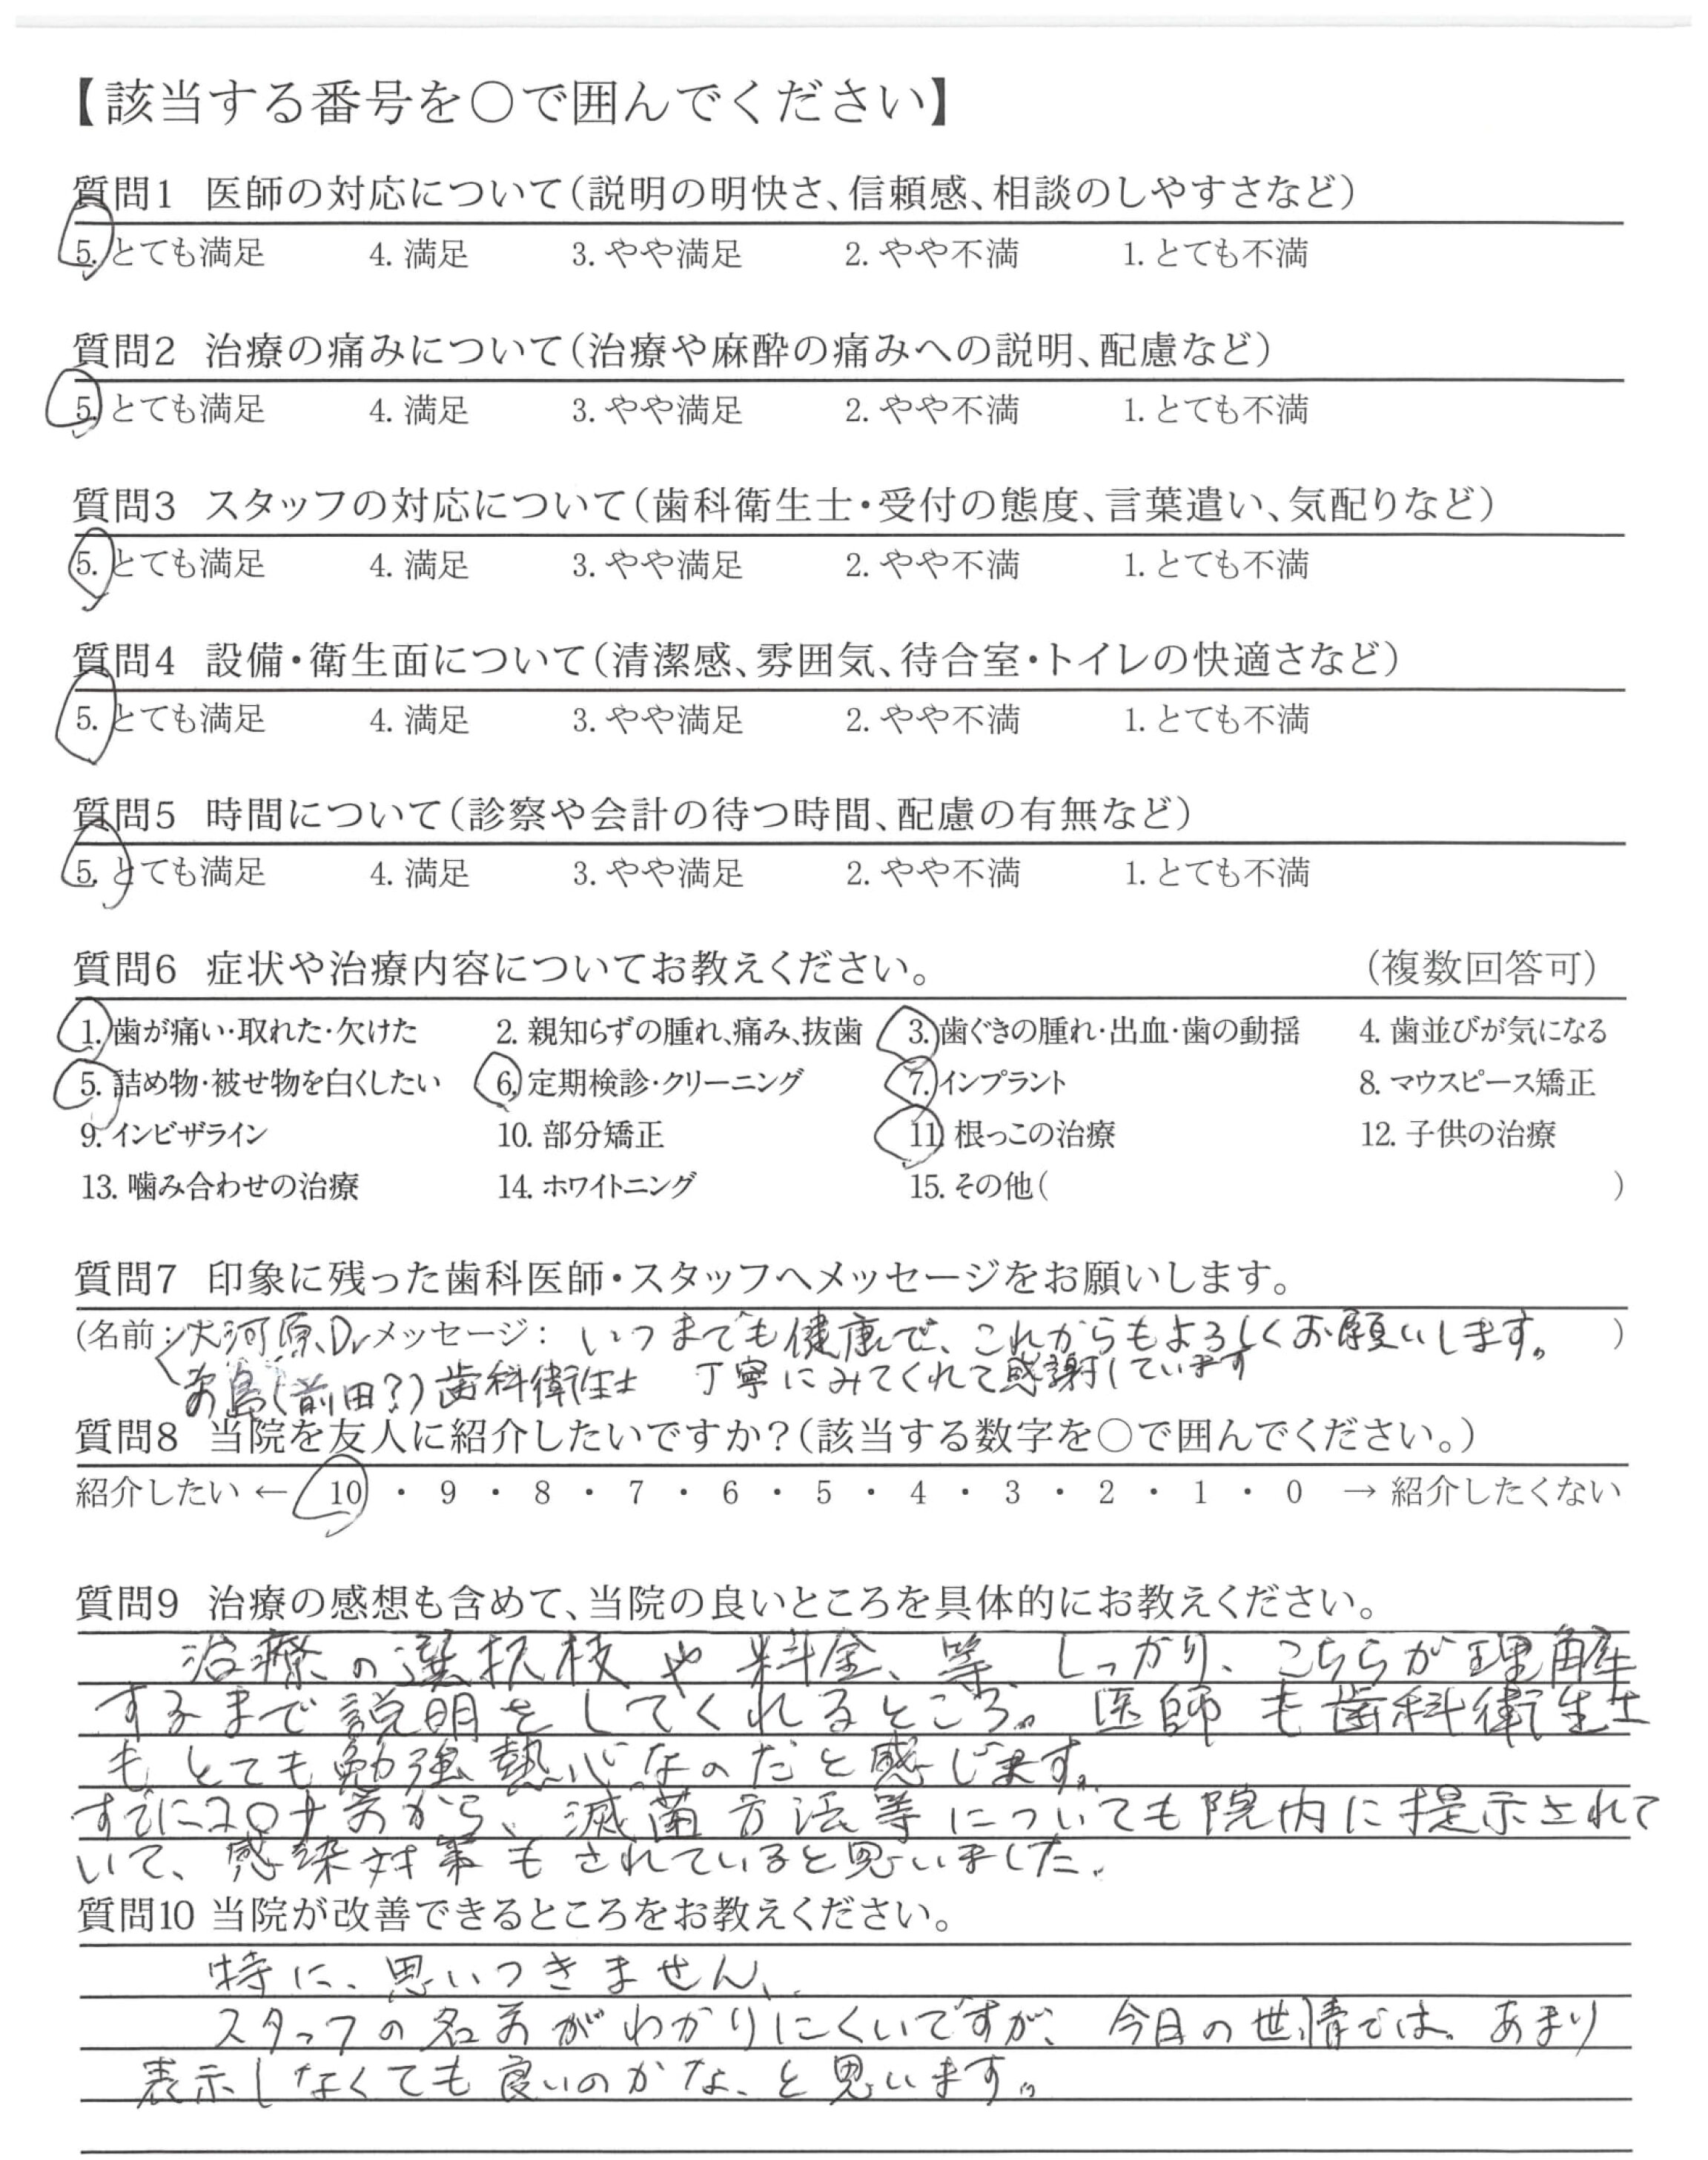 【該当する番号を○で囲んでください】
質問1 医師の対応について(説明の明快さ、信頼感、相談のしやすさなど)
5. とても満足 4. 満足 3. やや満足 2. やや不満 1. とても不満
質問2 治療の痛みについて(治療や麻酔の痛みへの説明、配慮など)
5. とても満足 4. 満足 3. やや満足 2. やや不満 1. とても不満
質問3 スタッフの対応について(歯科衛生士・受付の態度、言葉遣い、気配りなど)
5. とても満足 4. 満足 3. やや満足 2. やや不満 1. とても不満
質問4 設備・衛生面について(清潔感、雰囲気、待合室・トイレの快適さなど)
5. とても満足 4. 満足 3. やや満足 2. やや不満 1. とても不満
質問5 時間について(診察や会計の待つ時間、配慮の有無など)
5. とても満足 4. 満足 3. やや満足 2. やや不満 1. とても不満
質問6 症状や治療内容についてお教えください。 (複数回答可)
1. 歯が痛い・取れた・欠けた 2. 親知らずの腫れ、痛み、抜歯 3. 歯ぐきの腫れ・出血・歯の動揺 4. 歯並びが気になる
5. 詰め物・被せ物を白くしたい 6. 定期検診・クリーニング 7. インプラント 8. マウスピース矯正
9. インビザライン 10. 部分矯正 11. 根っこの治療 12. 子供の治療
13. 噛み合わせの治療 14. ホワイトニング 15. その他( )
質問7 印象に残った歯科医師・スタッフへメッセージをお願いします。
(名前: 大河原Dr メッセージ: いつまでも健康で、これからもよろしくお願いします。 )
島(前田?)歯科衛生士 丁寧にみてくれて感謝しています
質問8 当院を友人に紹介したいですか?(該当する数字を○で囲んでください。)
紹介したい ← 10 ・ 9 ・ 8 ・ 7 ・ 6 ・ 5 ・ 4 ・ 3 ・ 2 ・ 1 ・ 0 → 紹介したくない
質問9 治療の感想も含めて、当院の良いところを具体的にお教えください。
治療の選択枝や料金、等しっかり、こちらが理解
するまで説明をしてくれるところ。医師も歯科衛生士
もとても勉強熱心なのだと感じます。
すでにコロナ前から、滅菌方法等についても院内に提示されて
いて、感染対策もされていると思いました。
質問10 当院が改善できるところをお教えください。
特に、思いつきません、
スタッフの名前がわかりにくいですが、今日の世情では。あまり
表示しなくても良いのかな、と思います。